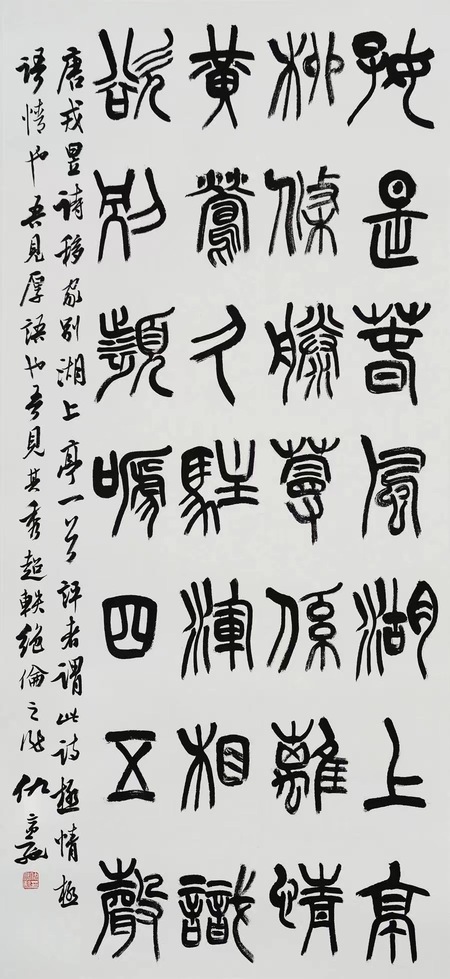 好是春風湖上亭
柳條滕蔓係離情
黃鶯久駐渾相識
欲別頻嗁四五聲
唐戎昱詩移家別湖上亭一首評者謂此詩極情極
語情也吾見厚語也吾見其秀超軼絕倫之 仇高馳